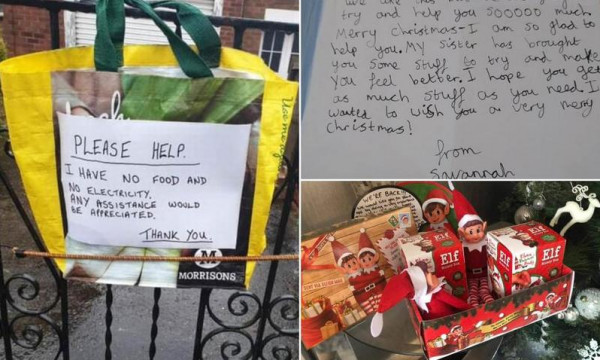 PLEASE HELP.
I HAVE NO FOOD AND
NO ELECTRICITY.
ANY ASSISTANCE WOULD
BE APPRECIATED.
THANK YOU.
M
MORRISONS
try and help you sooooo much
Merry Christmas I am so glad to
help you. My sister has brought
you some stuff to try and make
you feel better. I hope you get
as much stuff as you need. I
wanted to wish you a very merry
christmas!
from
Savannah
WE'RE BACK!
Elf
Elf
Elf